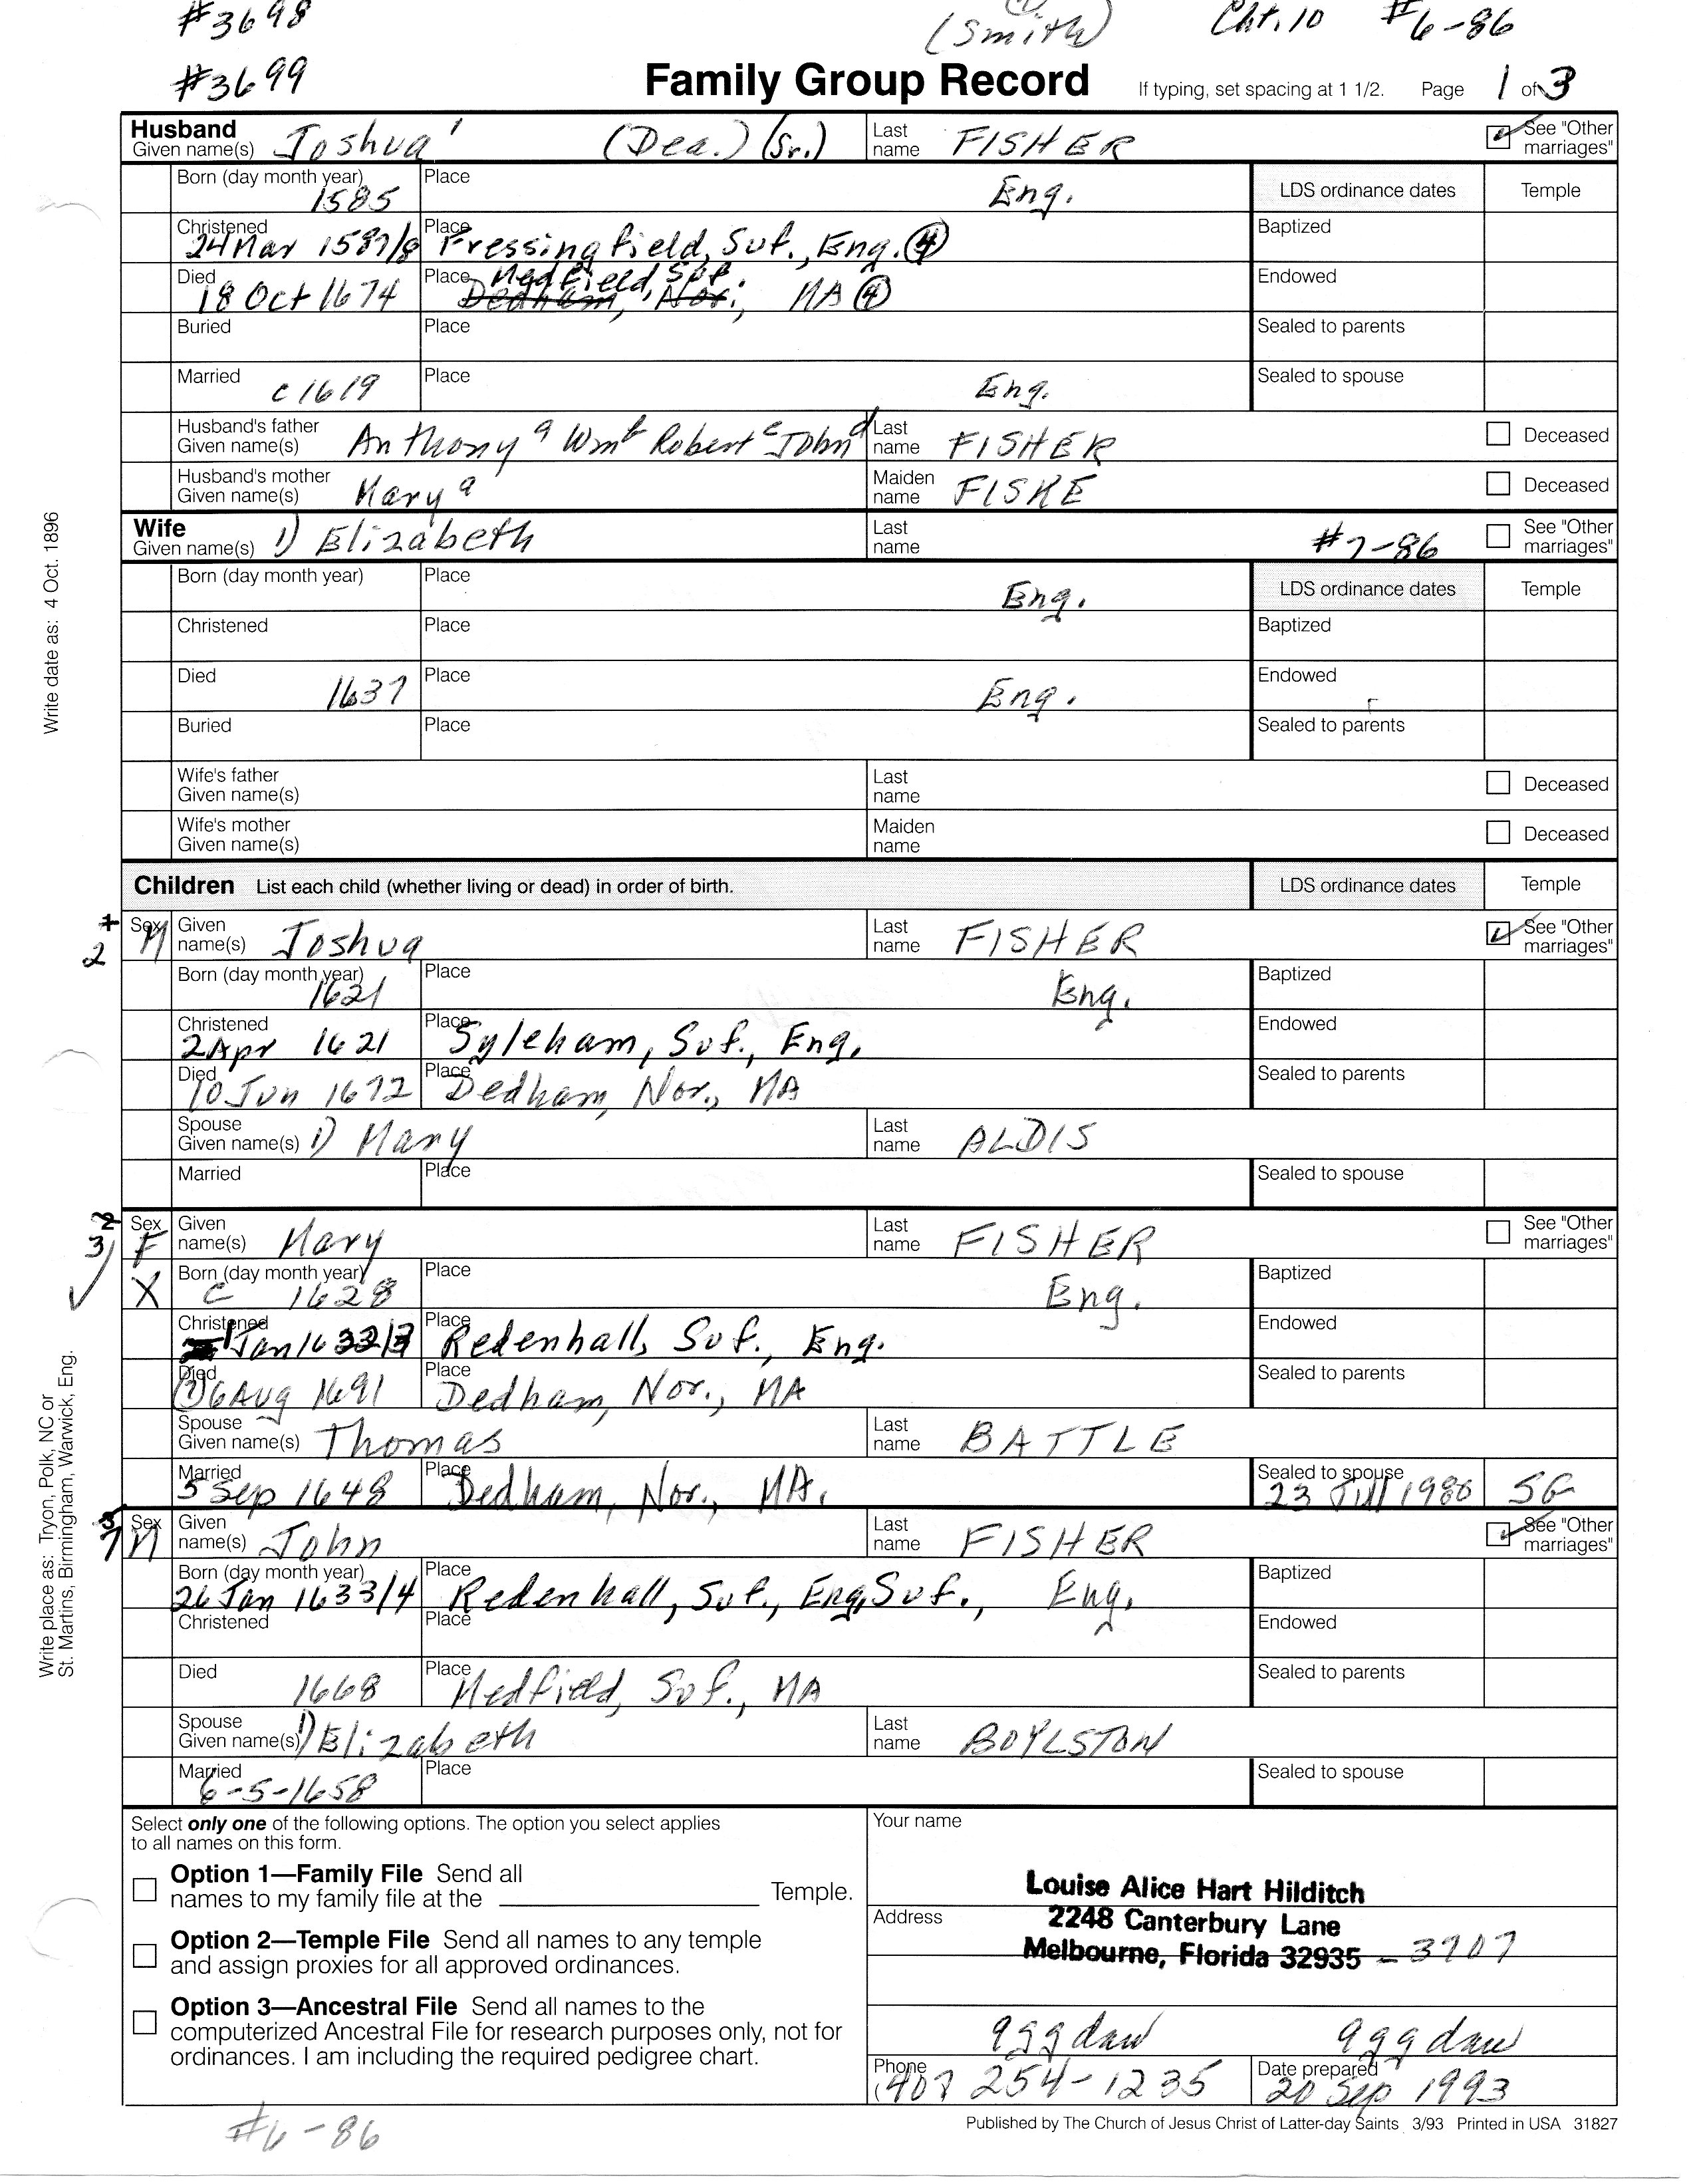 #3698 (Smith) Cht. 10 #6-86
#3699 Family Group Record If typing, set spacing at 1 1/2. Page 1 of 3
Husband
Given name(s) Joshua' (Dea.) (Sr.) Last name FISHER See "Other marriages"
Born (day month year) 1585 Place Eng. LDS ordinance dates Temple
Christened 24 Mar 1587/8 Place Fressingfield, Suf., Eng. (4) Baptized
Died 18 Oct 1674 Place Medfield, Suf. Dedham, Nor., MA (4) Endowed
Buried Place Sealed to parents
Married c 1619 Place Eng. Sealed to spouse
Husband's father
Given name(s) Anthony a Wm b Robert c John d Last name FISHER Deceased
Husband's mother
Given name(s) Mary a Maiden name FISKE Deceased
Wife
Given name(s) 1) Elizabeth Last name #7-86 See "Other marriages"
Born (day month year) Place Eng. LDS ordinance dates Temple
Christened Place Baptized
Died 1637 Place Eng. Endowed
Buried Place Sealed to parents
Wife's father
Given name(s) Last name Deceased
Wife's mother
Given name(s) Maiden name Deceased
Children List each child (whether living or dead) in order of birth. LDS ordinance dates Temple
1 2 Sex M Given name(s) Joshua Last name FISHER See "Other marriages"
Born (day month year) 1621 Place Eng. Baptized
Christened 2 Apr 1621 Place Syleham, Suf., Eng. Endowed
Died 10 Jun 1672 Place Dedham, Nor., MA Sealed to parents
Spouse
Given name(s) 1) Mary Last name ALDIS
Married Place Sealed to spouse
2 3) Sex F Given name(s) Mary Last name FISHER See "Other marriages"
X Born (day month year) c 1628 Place Eng. Baptized
Christened 1 Jan 1632/3 Place Redenhall, Suf., Eng. Endowed
Died 6 Aug 1691 Place Dedham, Nor., MA Sealed to parents
Spouse
Given name(s) Thomas Last name BATTLE
Married 5 Sep 1648 Place Dedham, Nor., MA. Sealed to spouse 23 Jul 1980 SG
3 7 Sex M Given name(s) John Last name FISHER See "Other marriages"
Born (day month year) 26 Jan 1633/4 Place Redenhall, Suf., Eng, Suf., Eng. Baptized
Christened Place Endowed
Died 1668 Place Medfield, Suf., MA Sealed to parents
Spouse
Given name(s) 1) Elizabeth Last name BOYLSTON
Married 6-5-1658 Place Sealed to spouse
Select only one of the following options. The option you select applies
to all names on this form.
Option 1—Family File Send all
names to my family file at the Temple.
Option 2—Temple File Send all names to any temple
and assign proxies for all approved ordinances.
Option 3—Ancestral File Send all names to the
computerized Ancestral File for research purposes only, not for
ordinances. I am including the required pedigree chart.
Your name
Louise Alice Hart Hilditch
Address 2248 Canterbury Lane
Melbourne, Florida 32935 - 3707
ggg dau ggg dau
Phone (407 254-1235 Date prepared 20 Sep 1993
Published by The Church of Jesus Christ of Latter-day Saints 3/93 Printed in USA 31827
#6-86
Write date as: 4 Oct. 1896
Write place as: Tryon, Polk, NC or
St. Martins, Birmingham, Warwick, Eng.